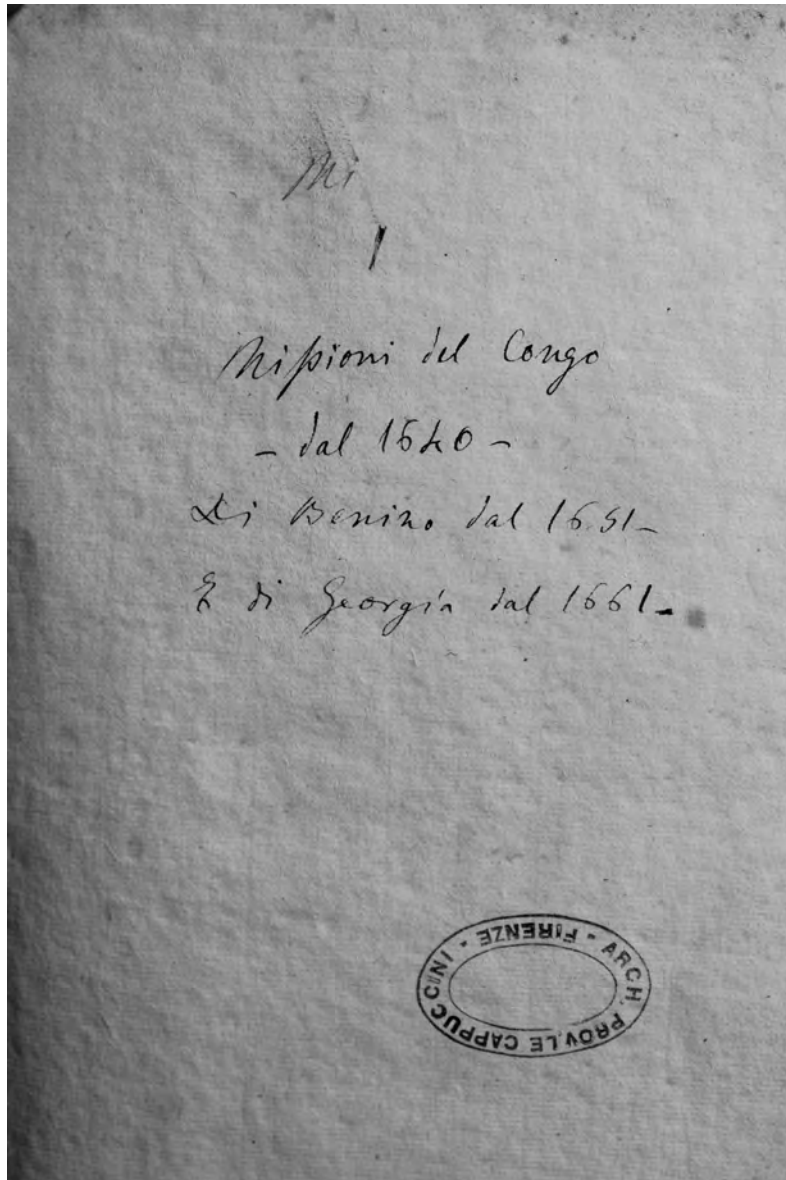 Mi
Missioni del Congo
- dal 1640 -
Di Benino dal 1651 -
E di Georgia dal 1661 -
ARCH. PROV.LE CAPPUCCINI - FIRENZE -